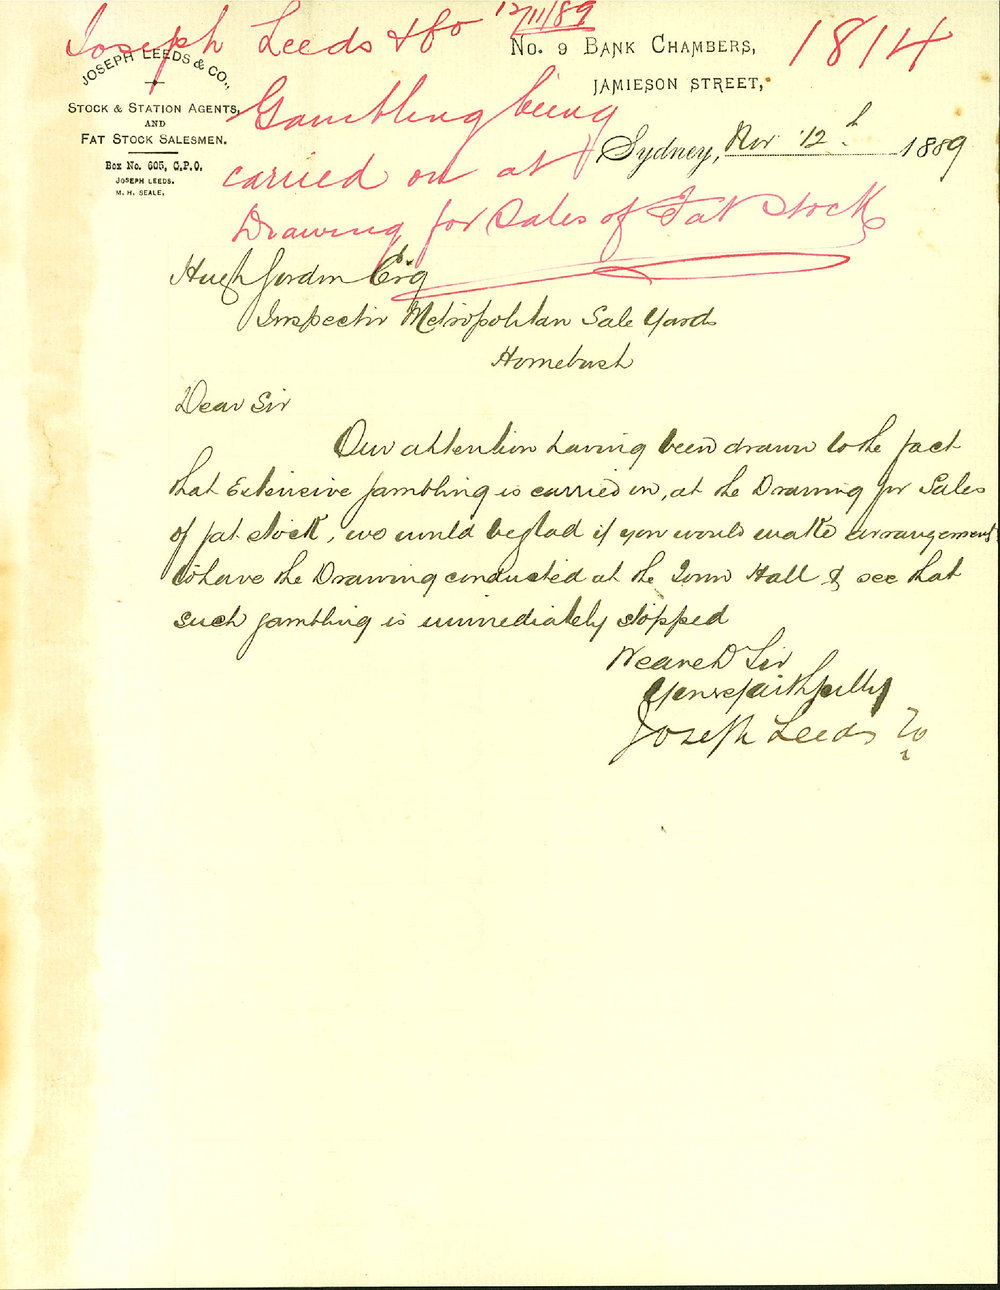 Joseph Leeds & Co 12/11/89
1814
Gambling being
carried on at
Drawing for Sales of Fat Stock
JOSEPH LEEDS & CO.,
STOCK & STATION AGENTS,
AND
FAT STOCK SALESMEN.
Box No. 605, G.P.O.
JOSEPH LEEDS.
M. H. SEALE.
No. 9 BANK CHAMBERS,
JAMIESON STREET,
Sydney, Nov 12th 1889
Hugh Gordon Esq
Inspector Metropolitan Sale Yards
Homebush
Dear Sir
Our attention having been drawn to the fact
that Extensive gambling is carried on, at the Drawing for Sales
of fat stock, we would be glad if you would make arrangements
to have the Drawing conducted at the Town Hall & see that
such gambling is immediately stopped
We are Dr Sir
Yours faithfully
Joseph Leeds Co